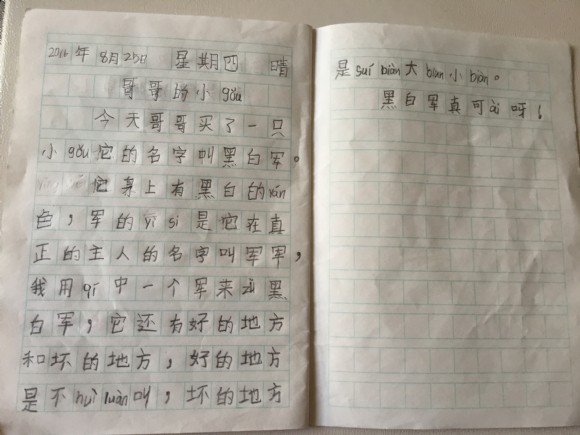 2016年8月25日 星期四 晴
哥哥的小gǒu
今天哥哥买了一只
小gǒu它的名字叫黑白军。
它身上有黑白的yán
色，军的yì si是它在真
正的主人的名字叫军军，
我用qí中一个军来zǔ黑
白军，它还有好的地方
和坏的地方，好的地方
是不huì luàn叫，坏的地方
是suí biàn大biàn小biàn。
黑白军真可ài呀！